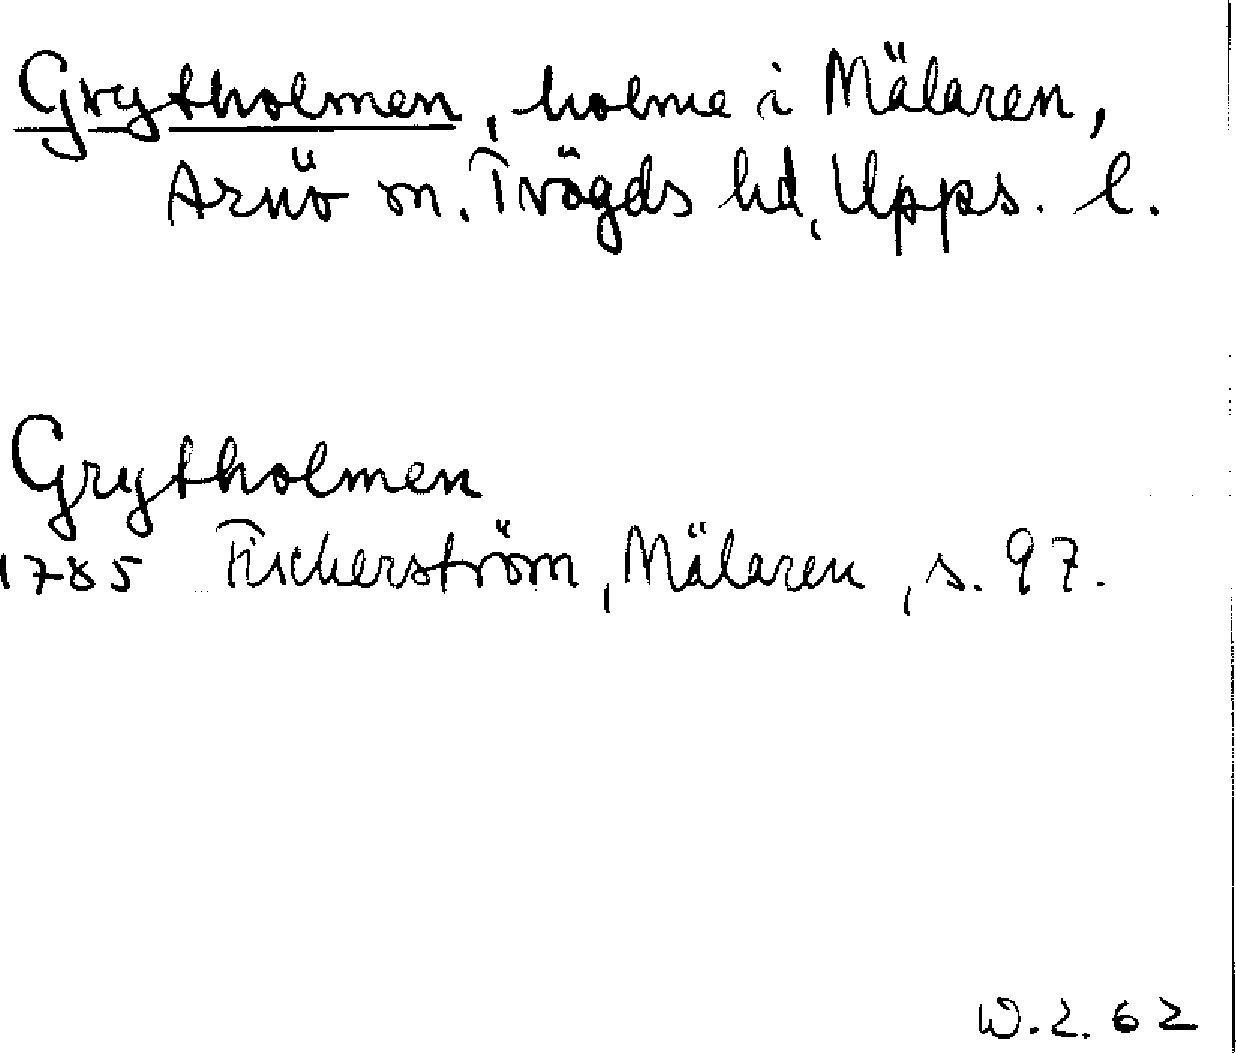 Grytholmen, holme i Mälaren,
Arnö sn. Trögds hd, Upps. l.
Grytholmen
1785 Fischerström, Mälaren, s. 97.
W.2.62